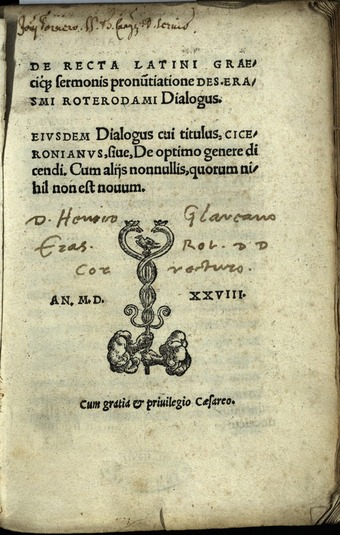 DE RECTA LATINI GRAE/
ciq́; sermonis pronũtiatione DES. ERA/
SMI ROTERODAMI Dialogus.
EIVSDEM Dialogus cui titulus, CICE/
RONIANVS, siue, De optimo genere di
cendi. Cum alijs nonnullis, quorum ni/
hil non est nouum.
D. Henrico Glareano
Eras. Rot. D D
Cor recturo.
AN. M. D. XXVIII.
Cum gratia & priuilegio Cæsareo.